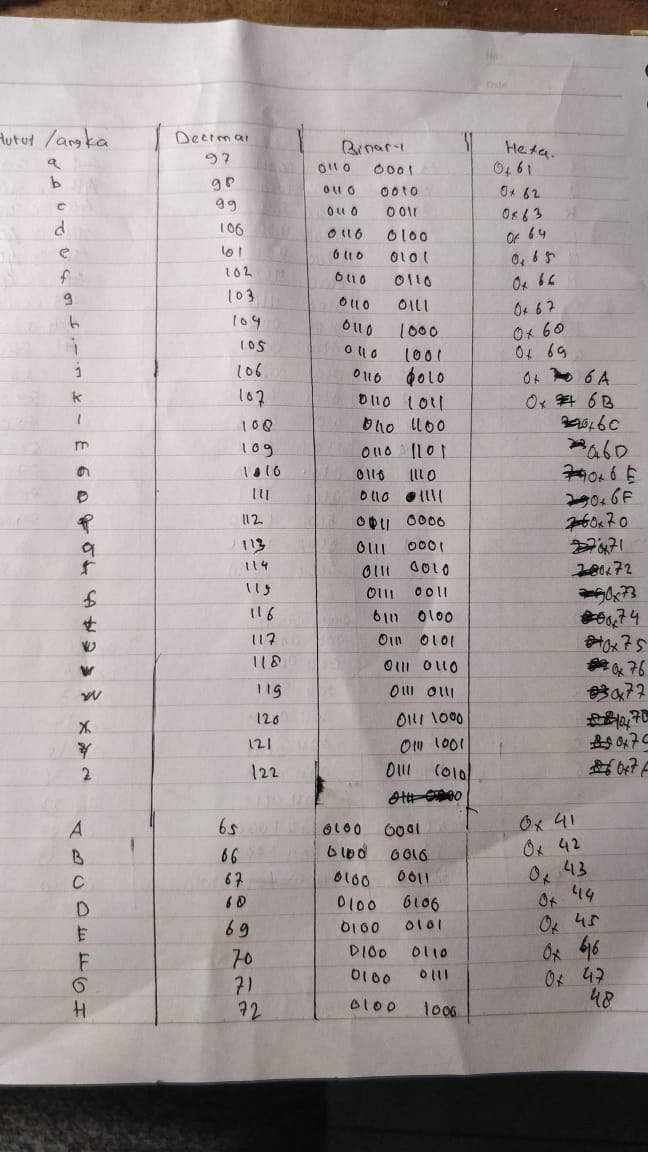 Huruf / angka | Decimal | Binari | Hexa.
a 97 0110 0001 0x 61
b 98 0110 0010 0x 62
c 99 0110 0011 0x 63
d 100 0110 0100 0x 64
e 101 0110 0101 0x 65
f 102 0110 0110 0x 66
g 103 0110 0111 0x 67
h 104 0110 1000 0x 68
i 105 0110 1001 0x 69
j 106 0110 0010 0x 6A
k 107 0110 1011 0x 6B
l 108 0110 1100 0x6C
m 109 0110 1101 0x6D
n 1010 0110 1110 0x6E
o 111 0110 1111 0x6F
p 112 0011 0000 0x70
q 113 0111 0001 0x71
r 114 0111 0010 0x72
s 115 0111 0011 0x73
t 116 0111 0100 0x74
u 117 0111 0101 0x75
v 118 0111 0110 0x76
w 119 0111 0111 0x77
x 120 0111 1000 0x78
y 121 0111 1001 0x79
z 122 0111 1010 0x7A
A 65 0100 0001 0x 41
B 66 0100 0010 0x 42
C 67 0100 0011 0x 43
D 68 0100 0100 0x 44
E 69 0100 0101 0x 45
F 70 0100 0110 0x 46
G 71 0100 0111 0x 47
H 72 0100 1000 48